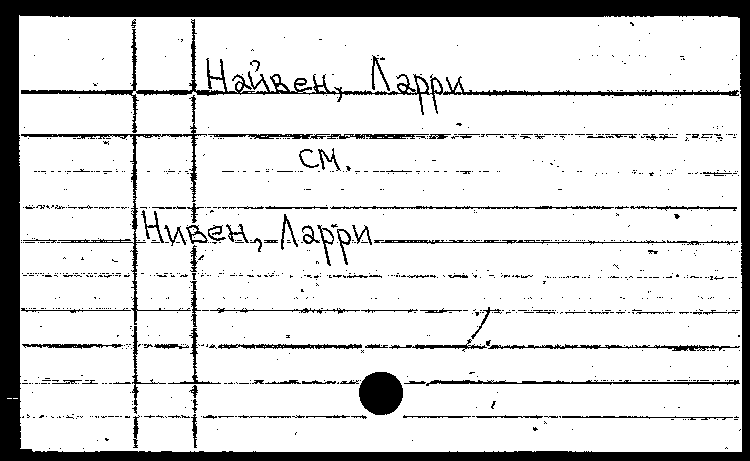 Найвен, Ларри
см.
Нивен, Ларри